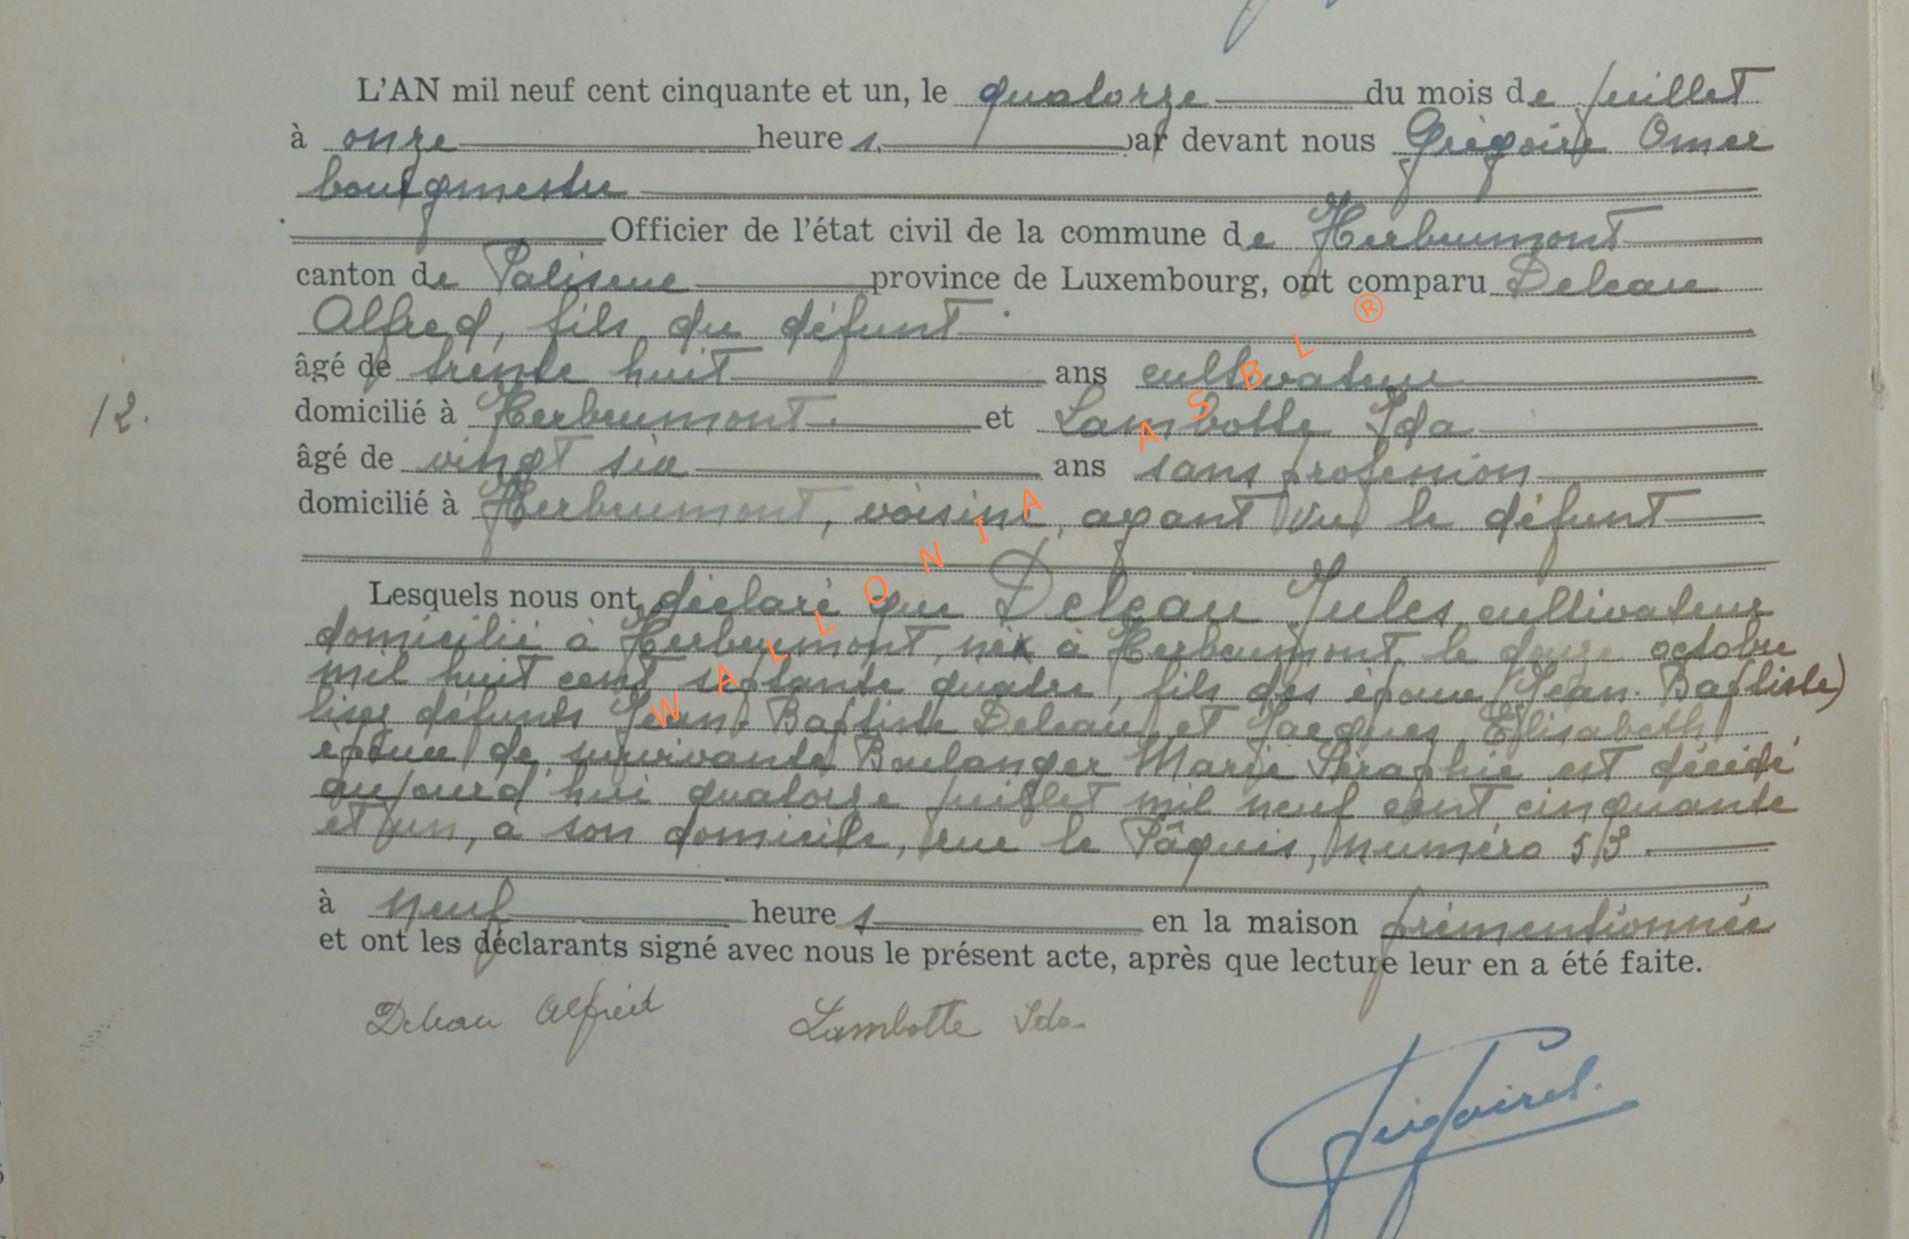 L'AN mil neuf cent cinquante et un, le quatorze du mois de juillet
à onze heures par devant nous Grégoire Omer
bourgmestre
Officier de l'état civil de la commune de Herbeumont
canton de Paliseul province de Luxembourg, ont comparu Deleau
Alfred, fils du défunt
âgé de trente huit ans cultivateur
12.
domicilié à Herbeumont et Lambotte Ida
âgé de vingt six ans sans profession
domicilié à Herbeumont, voisine, ayant vu le défunt
Lesquels nous ont déclaré que Deleau Jules, cultivateur
domicilié à Herbeumont, né à Herbeumont le douze octobre
mil huit cent septante quatre, fils des époux (Jean-Baptiste)
lisez défunts Jean-Baptiste Deleau et Jacques Elisabeth
époux de survivante Boulanger Marie Séraphie est décédé
aujourd'hui quatorze juillet mil neuf cent cinquante
et un, à son domicile, rue le Pâquis, numéro 53.
à neuf heures en la maison prémentionnée
et ont les déclarants signé avec nous le présent acte, après que lecture leur en a été faite.
Deleau Alfred Lambotte Ida
WALLONIA ASBL ®